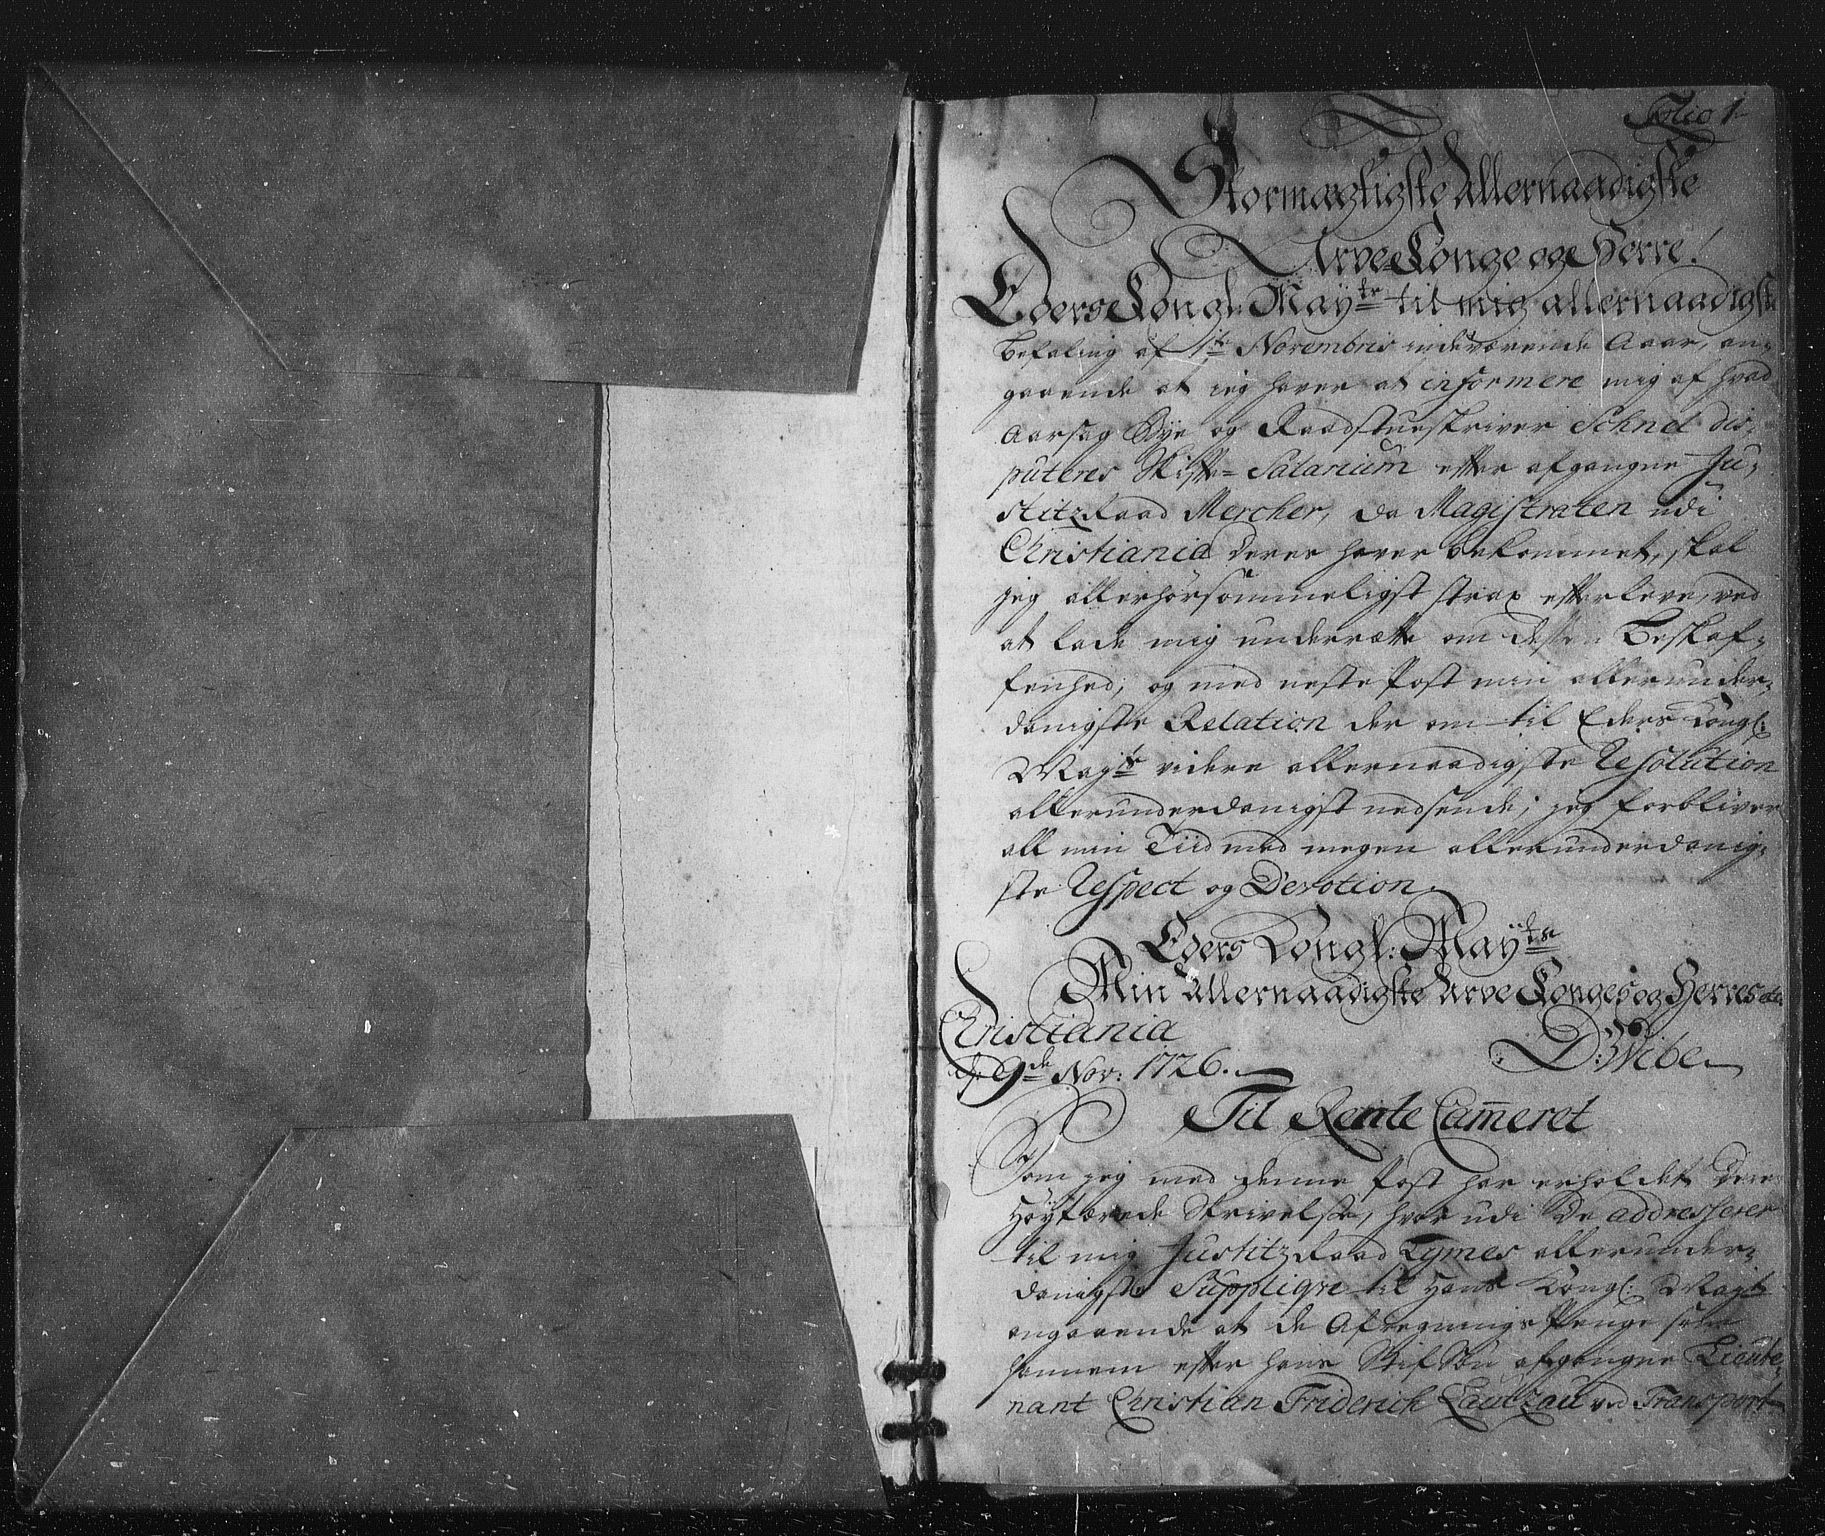 Folio 1
Stormægtigste Allernaadigste
Arve Konge og Herre!
Eders Kongl: May:te til mig allernaadigste
Befaling af 1te Novembris indeværende Aar, an-
gaaende at jeg haver at informere mig af hvad
Aarsag Bye og Raadstueskriver Schnel dis-
puteres Skifte-Salarium efter afgangne Ju-
stitzRaad Mercher, da Magistraten udi
Christiania deres haver bekommet, skal
jeg allerhörsommeligst strax efterleve, ved
at lade mig underrette om dessen Beskaf-
fenhed, og med neste Post min allerunder-
danigste Relation der om til Eders Kongl:
May:ts videre allernaadigste Resolution
allerunderdanigst nedsende; jeg forbliver
all min Tiid med megen allerunderdanig-
ste Respect og Devotion
Eders Kongl: May:ts
Min Allernaadigste Arve Konges og Herres etc:
Christiania
d. 9de Nov: 1726.
D: Wibe
Til Rente Cam̅eret
Som jeg med denne Post har erholdet Dere
Höytærede Skrivelse, hvor udi De addresserer
til mig JustitzRaad Tymes allerunder-
danigste Supplique til Hans Kongl: Mayts
angaaende at de Afregnings Penge som
hannem efter hans Stif Sön afgangne Lieute-
nant Christian Friderich Lautzau ved Transport